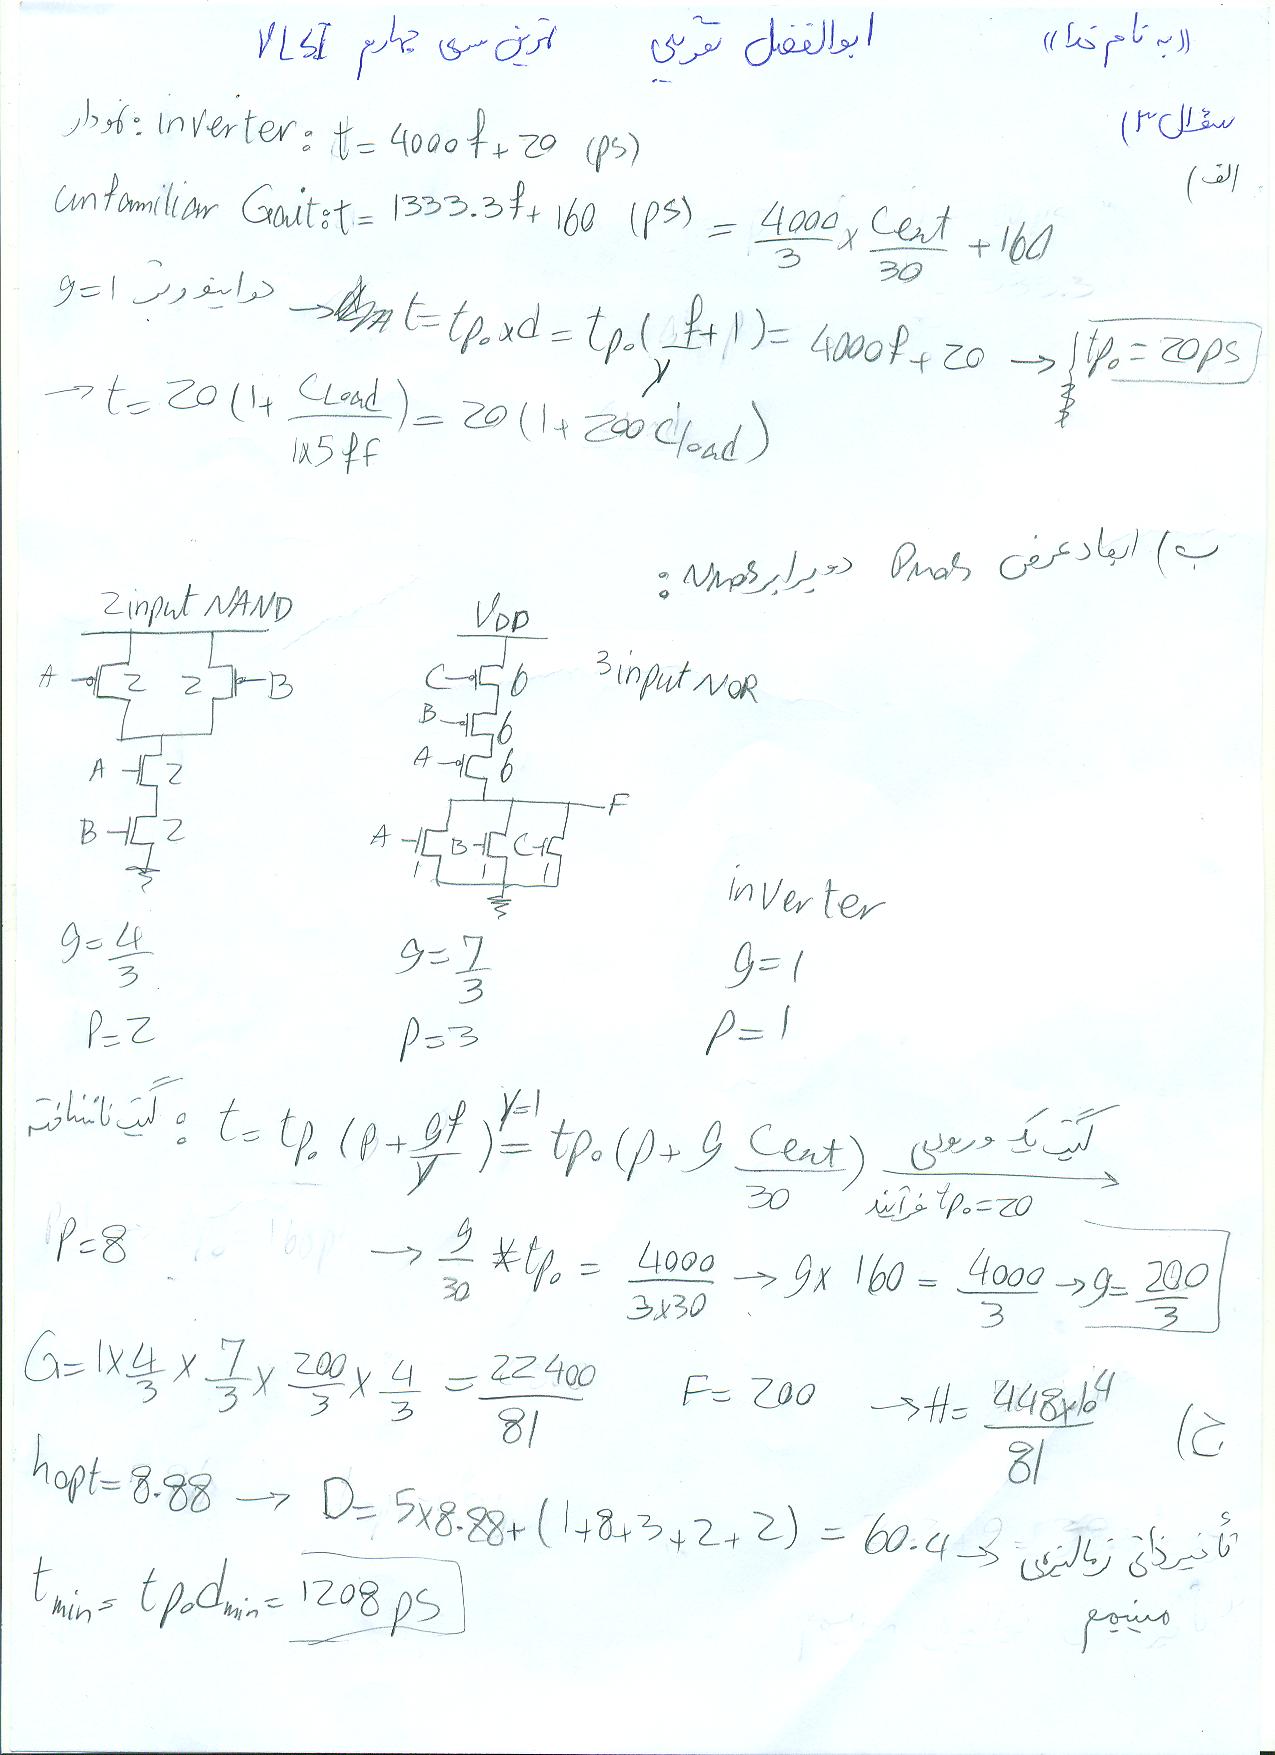 ((به نام خدا)) ابوالفضل تمرین سری چهارم VLSI
سؤال ۳)
الف)
نمودار: inverter: t = 4000f + 20 (ps)
unfamiliar Gait: t = 1333.3f + 160 (ps) = 4000/3 × Cext/30 + 160
g=1 → t = tp₀×d = tp₀(f/γ + 1) = 4000f + 20 → tp₀ = 20ps
→ t = 20(1 + CLoad/1×5ff) = 20(1 + 200 Cload)
ب) ابعاد عرض Pmos دو برابر Nmos:
2 input NAND
VDD
3 input NOR
A 2 2 B
C 6
B 6
A 6
A 2
B 2
F
A 1 B 1 C 1
inverter
g = 4/3 g = 7/3 g = 1
P = 2 P = 3 P = 1
گیت ناشناخته: t = tp₀(P + gf/γ) γ=1 = tp₀(P + g Cext/30) گیت یک ورودی فرآیند tp₀=20 →
P = 8 → g/30 * tp₀ = 4000/3×30 → g × 160 = 4000/3 → g = 200/3
ج)
G = 1 × 4/3 × 7/3 × 200/3 × 4/3 = 22400/81 F = 200 → H = 448×10⁴/81
hopt = 8.88 → D = 5×8.88 + (1+8+3+2+2) = 60.4 → تأخیر ذاتی نرمالیزه مینیمم
tmin = tp₀dmin = 1208 ps